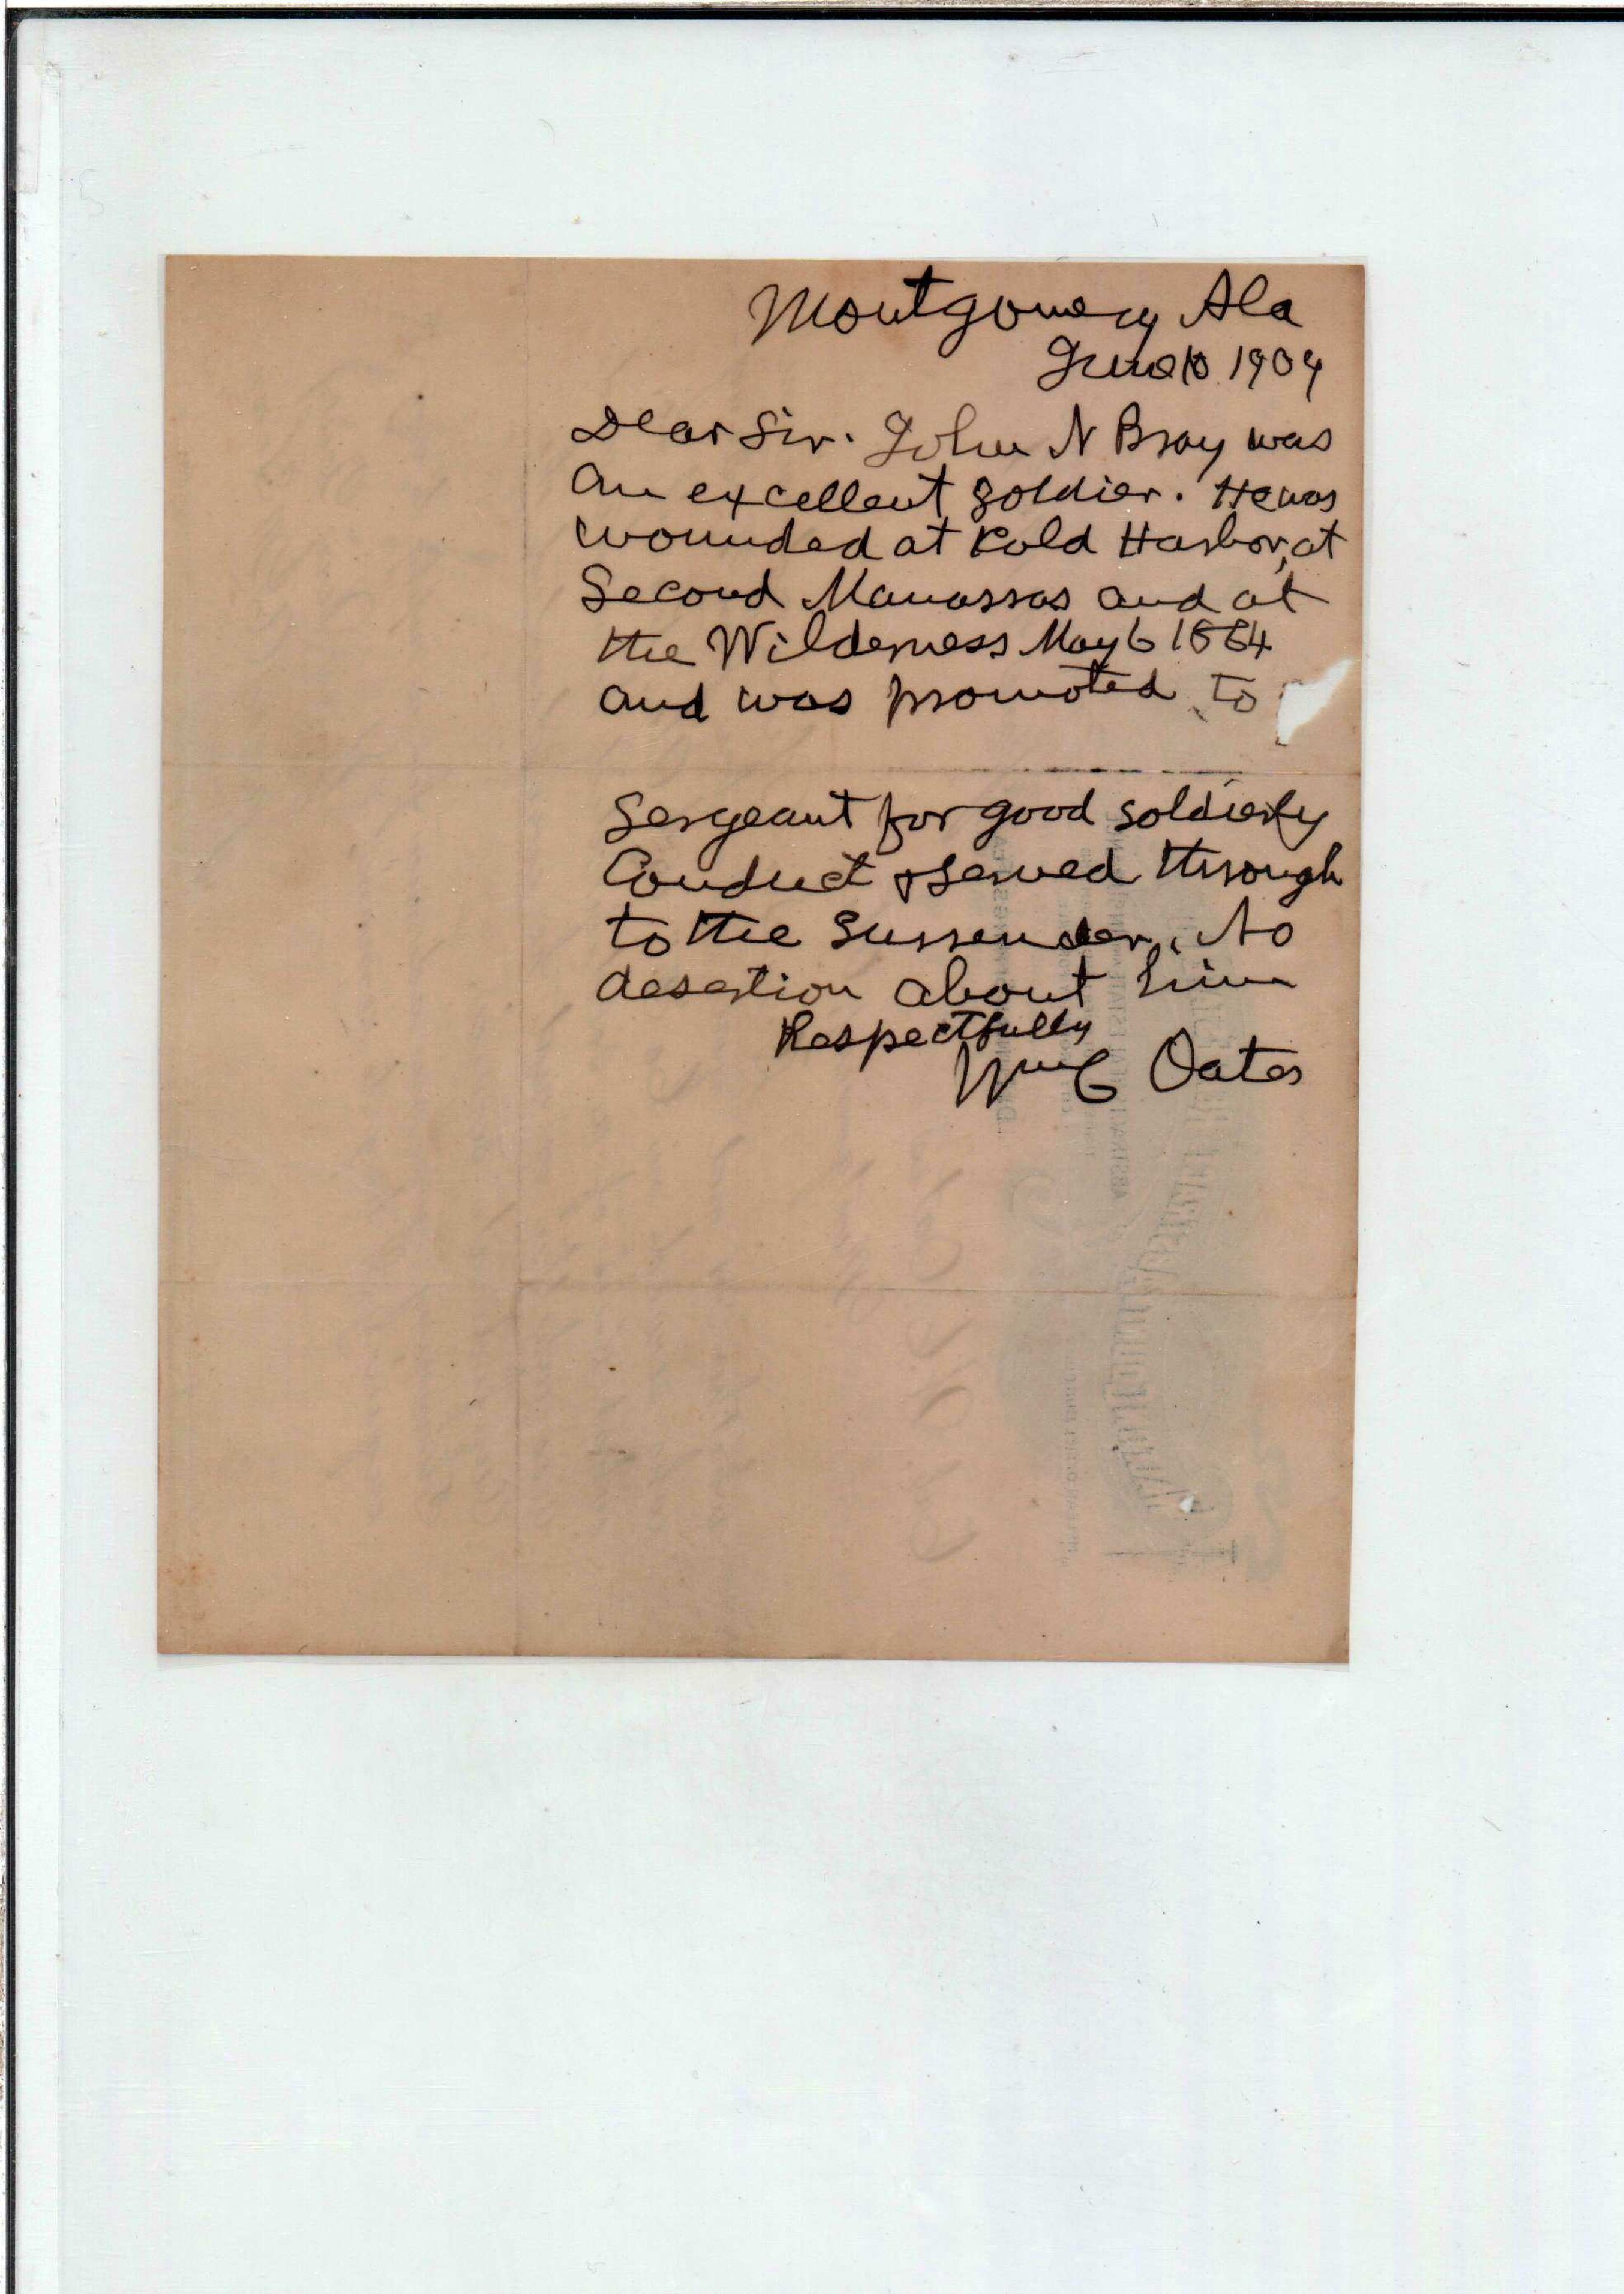 Montgomery Ala
June 10 1909
Dear Sir. John N Bray was
an excellent soldier. He was
wounded at Cold Harbor, at
Second Manassas and at
the Wilderness May 6 1864
and was promoted to
Sergeant for good soldierly
Conduct & served through
to the surrender. No
desertion about him
Respectfully
Wm C Oates